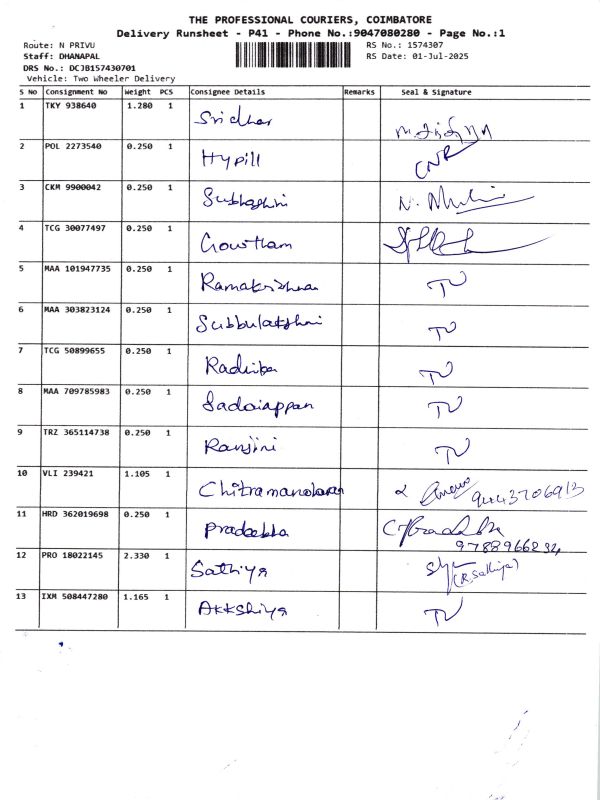 THE PROFESSIONAL COURIERS, COIMBATORE
Delivery Runsheet - P41 - Phone No.:9047080280 - Page No.:1
Route: N PRIVU RS No.: 1574307
Staff: DHANAPAL RS Date: 01-Jul-2025
DRS No.: DCJB157430701
Vehicle: Two Wheeler Delivery
S No Consignment No Weight PCS Consignee Details Remarks Seal & Signature
1 TKY 938640 1.280 1 Sridhar
2 POL 2273540 0.250 1 Hypill CNR
3 CKM 9900042 0.250 1 Subhashini
4 TCG 30077497 0.250 1 Gowtham
5 MAA 101947735 0.250 1 Ramakrishnan TV
6 MAA 303823124 0.250 1 Subbulakshmi TV
7 TCG 50899655 0.250 1 Radhika TV
8 MAA 709785983 0.250 1 Sadaiappan TV
9 TRZ 365114738 0.250 1 Ranjini TV
10 VLI 239421 1.105 1 Chitramanoharan 9443706913
11 HRD 362019698 0.250 1 Pradeebha
9788966234
12 PRO 18022145 2.330 1 Sathiya (R. Sathiya)
13 IXM 508447280 1.165 1 Akkshiya TV